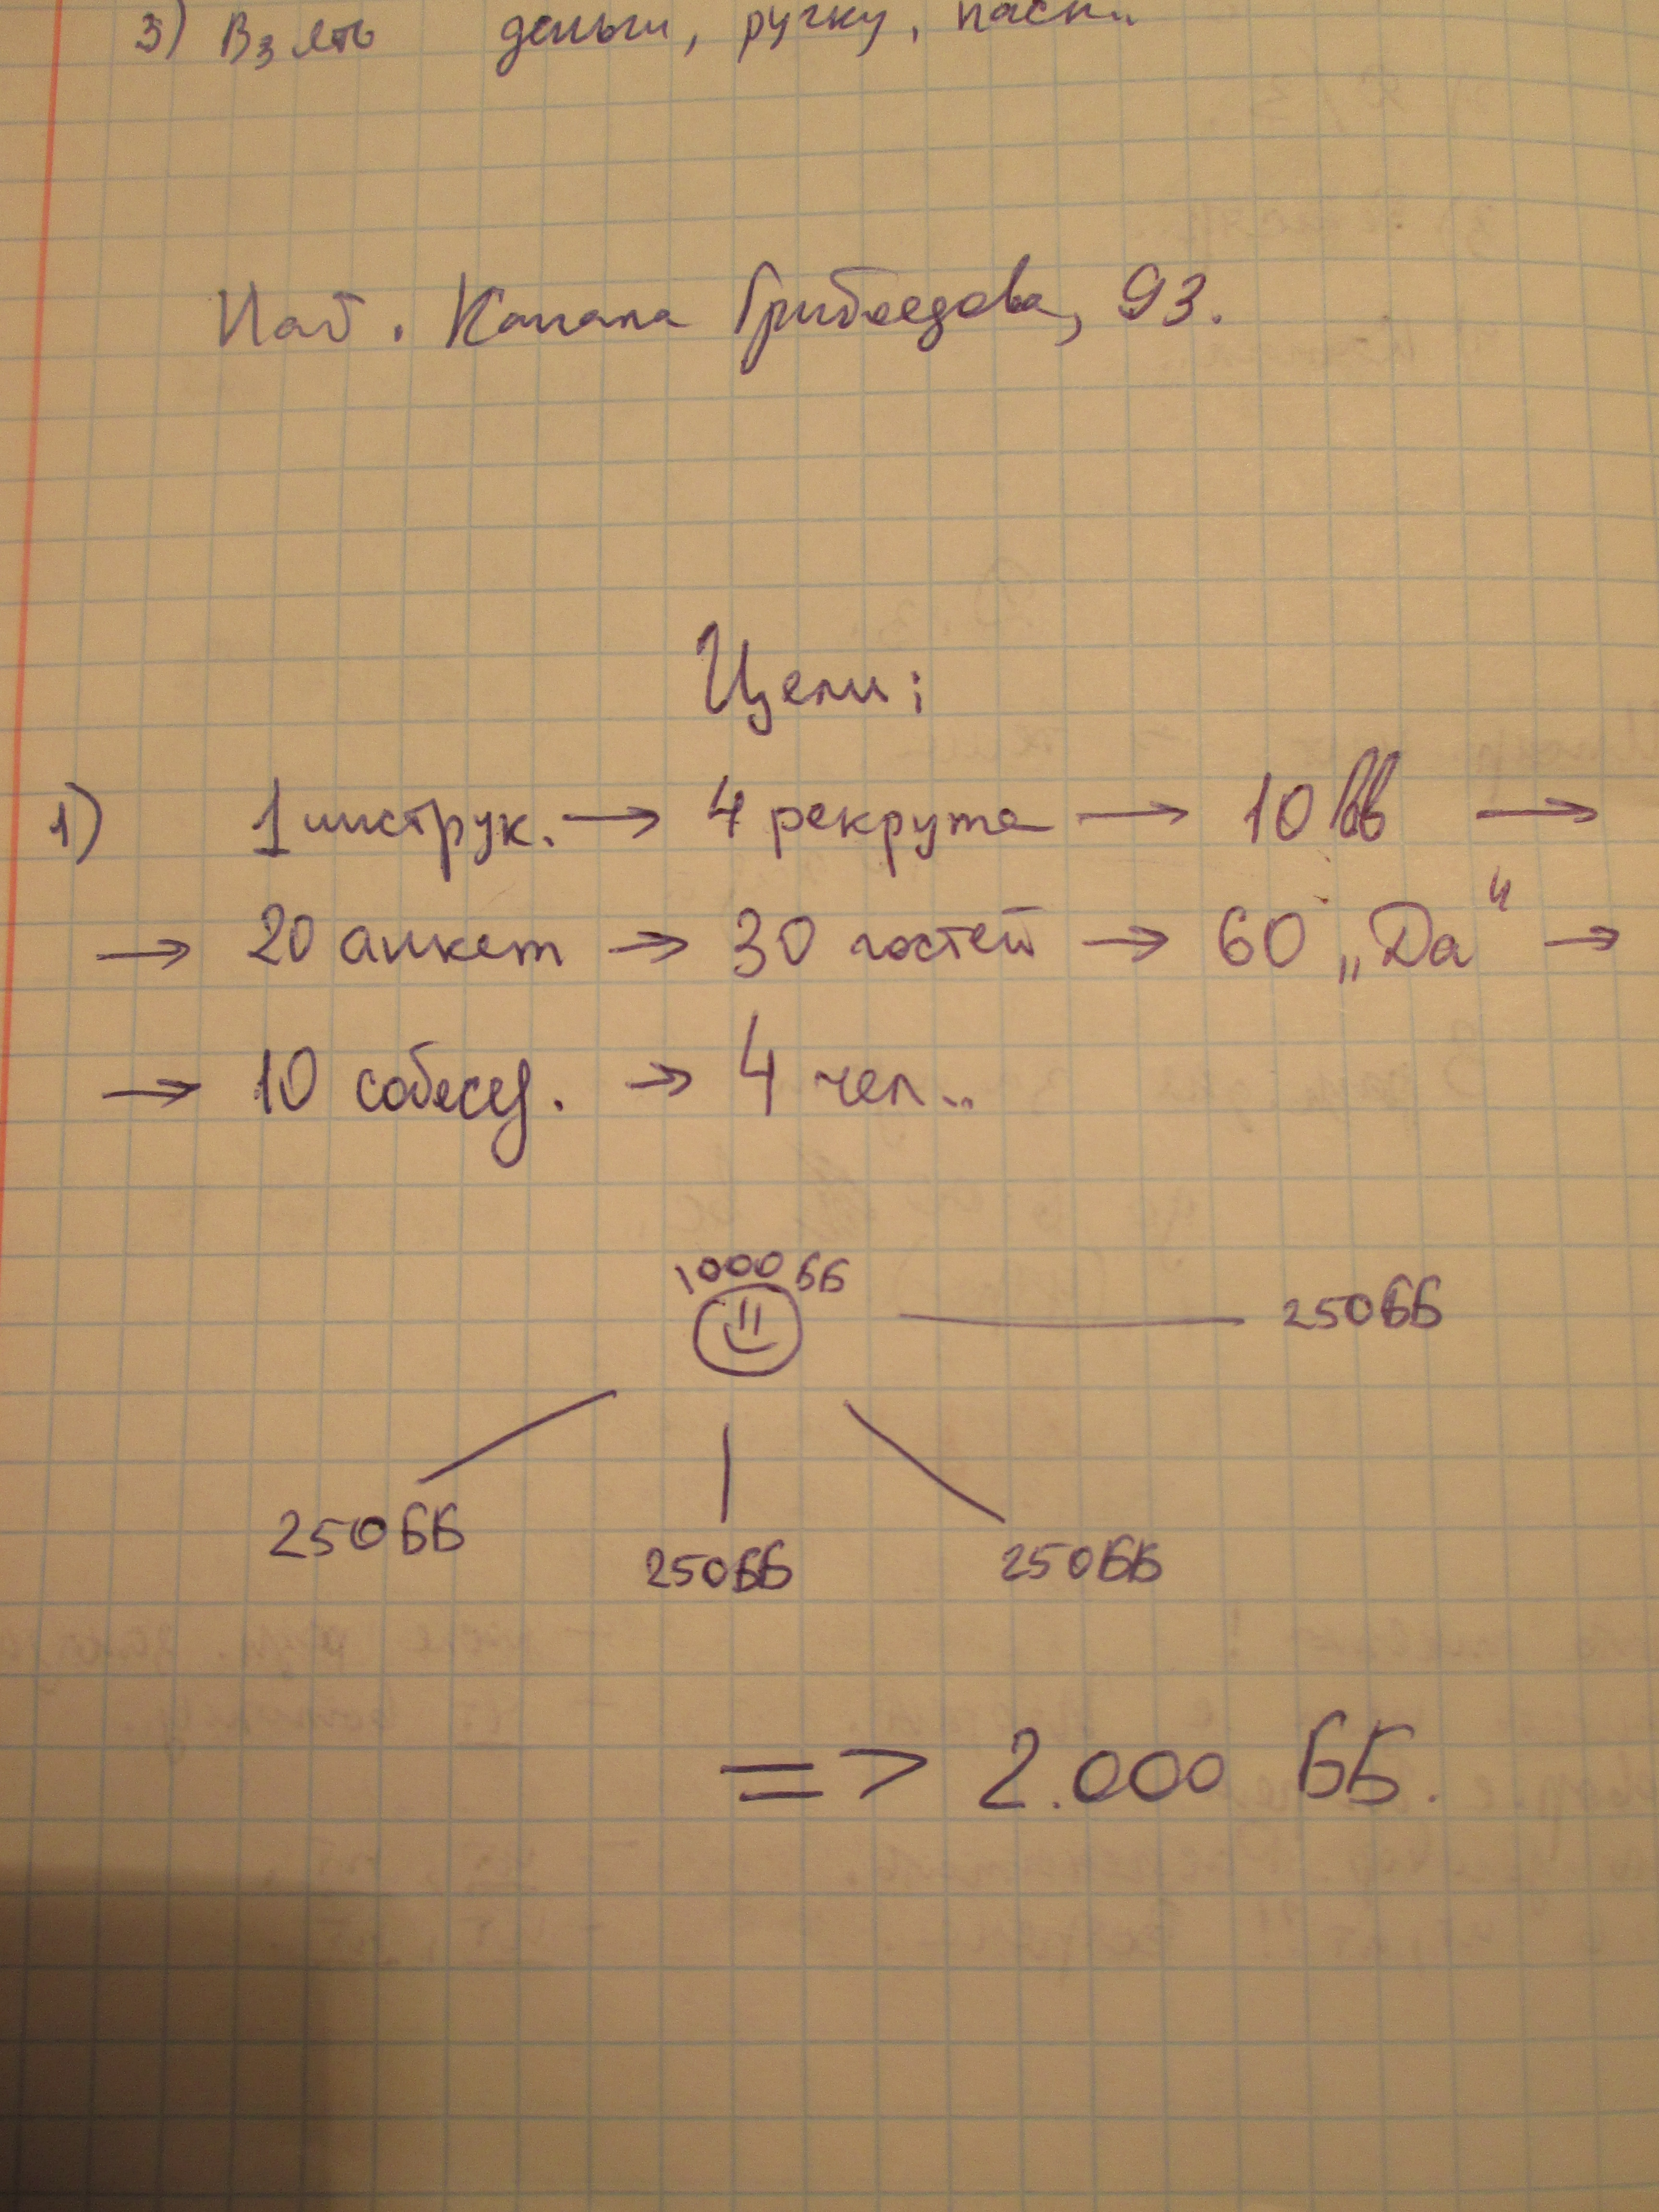 3) Взять деньги, ручку,
Наб. Канала Грибоедова, 93.
Цели:
1) 1 инструк. → 4 рекрута → 10 вв →
→ 20 анкет → 30 гостей → 60 „Да“ →
→ 10 собесед. → 4 чел..
1000 ББ
250ББ
250ББ 250ББ 250ББ
=> 2.000 ББ.